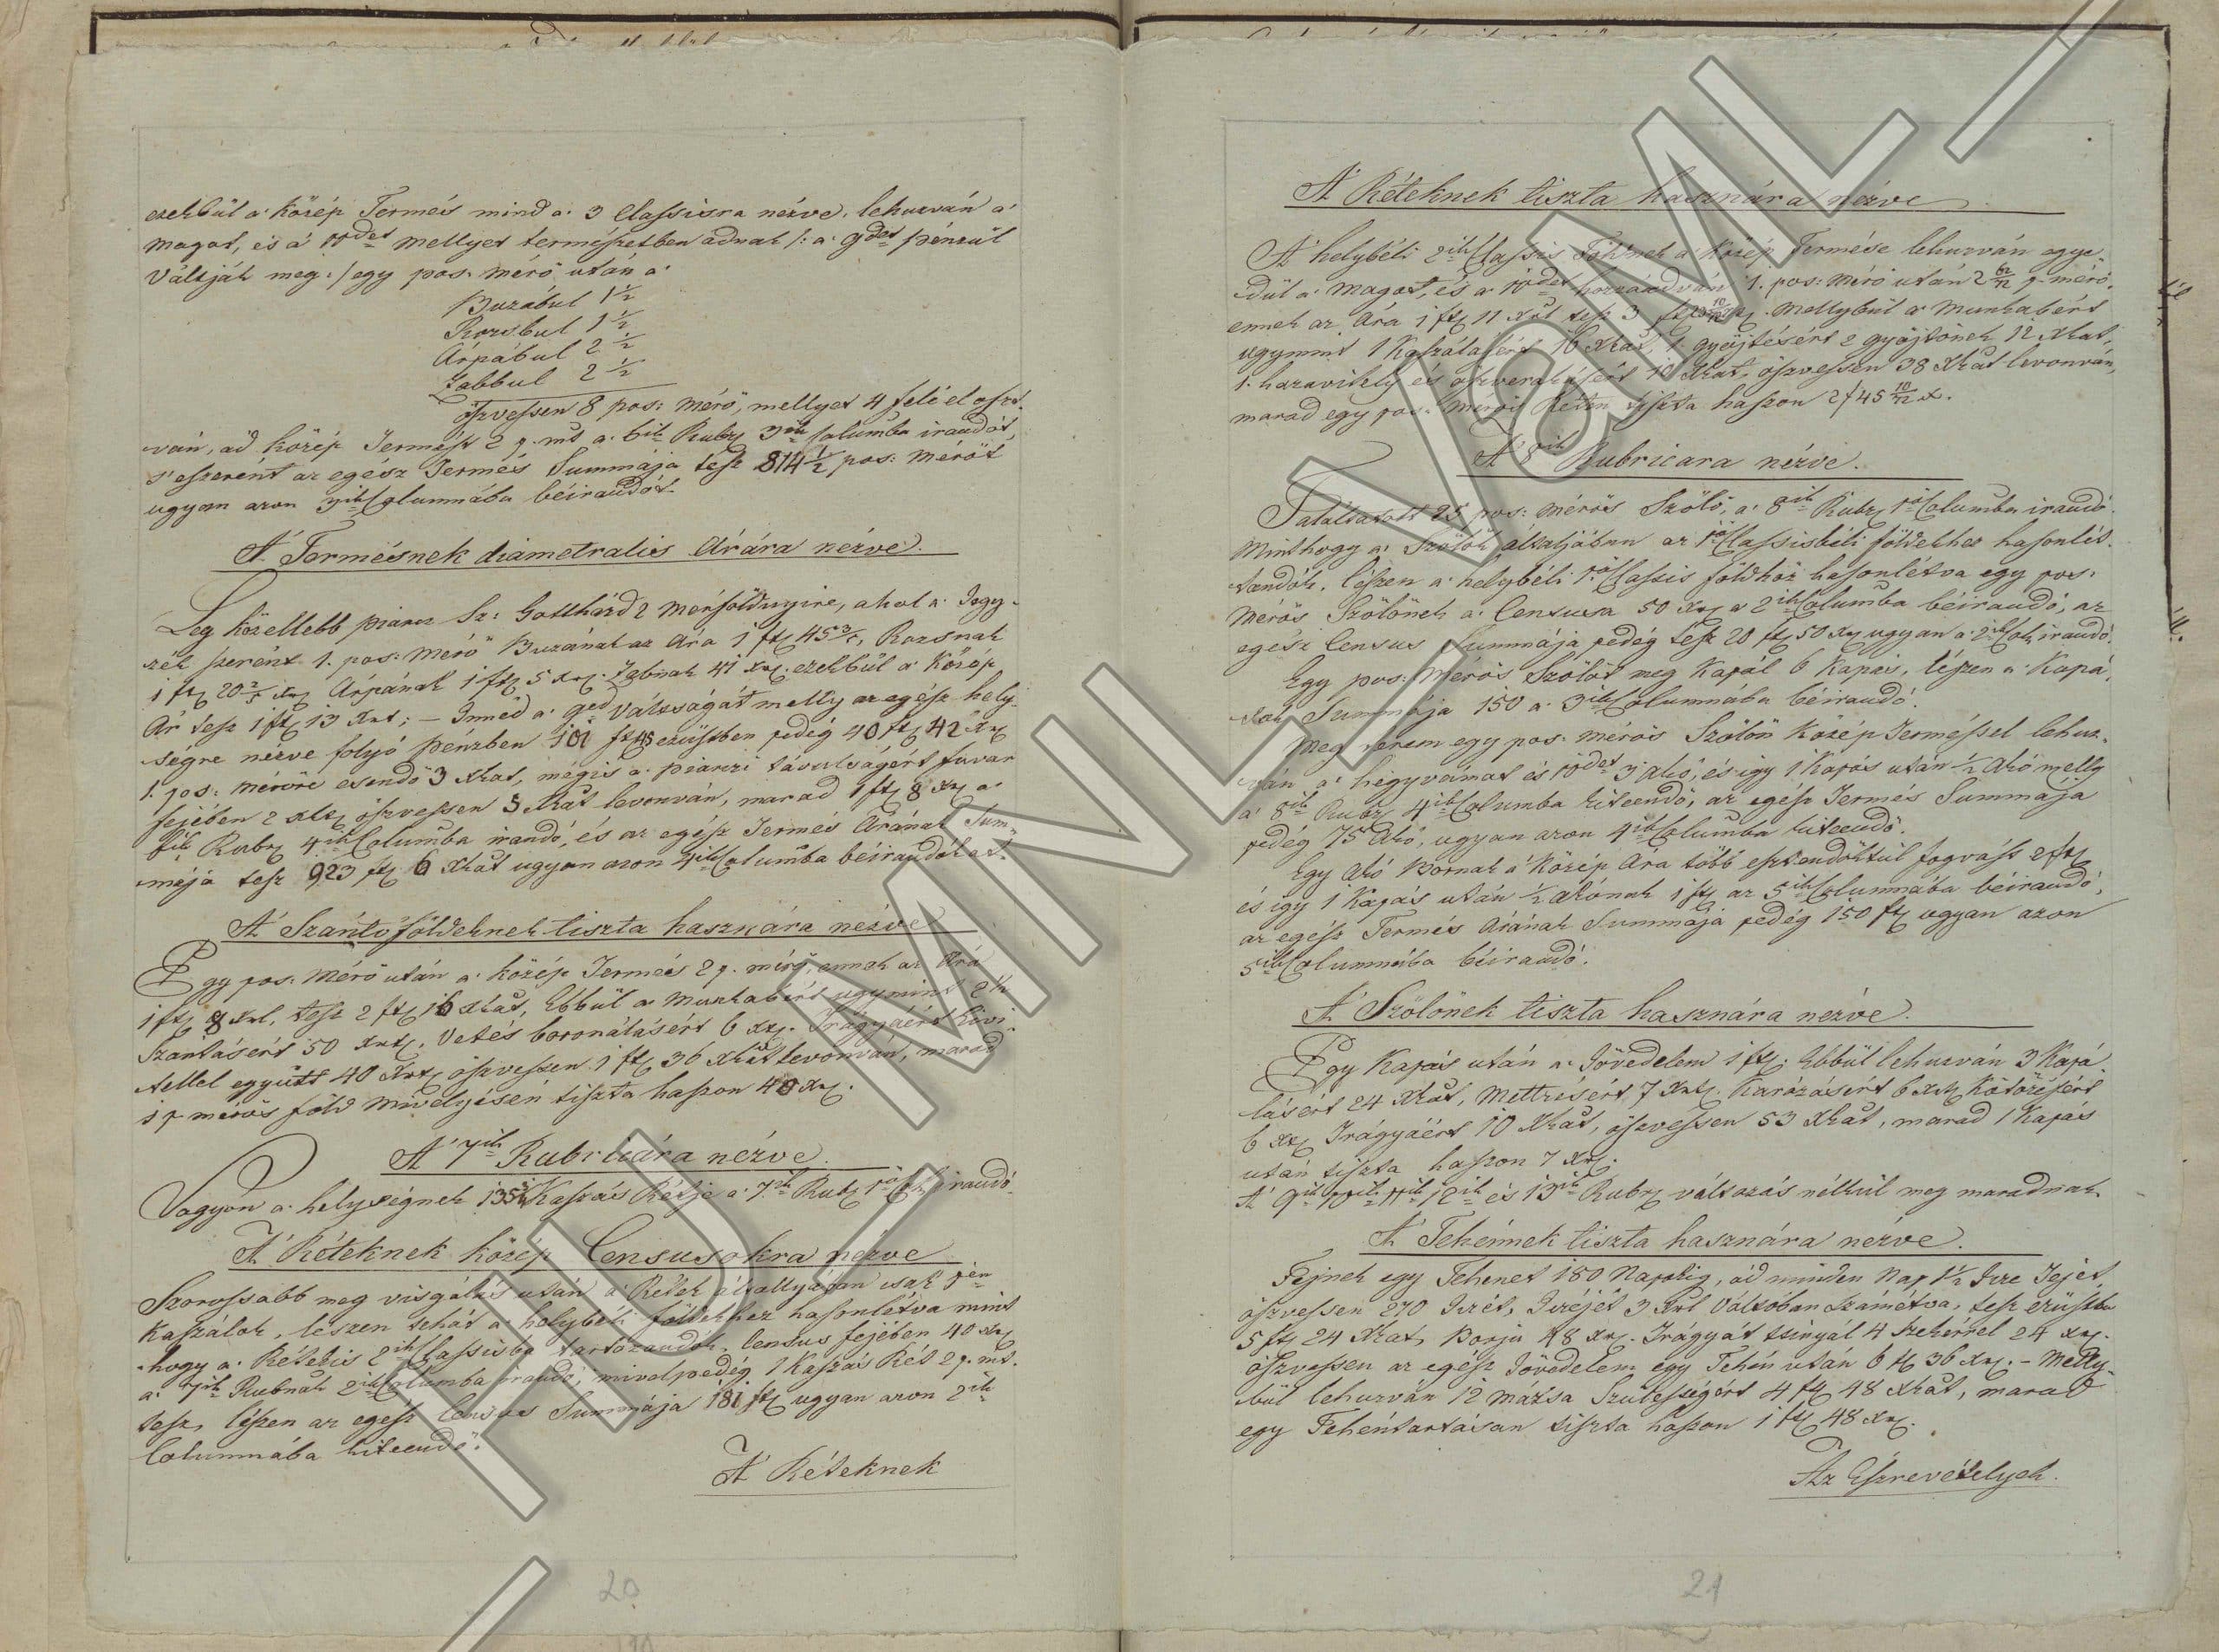 ezekbül a' közép Termés mind a' 3 Classisra nézve, lehuzván a'
magot, és a' 10det mellyet természetben adnak /: a' 9det pénzül
váltják meg :/ egy pos. mérő után a'
Buzábul 1 1/2
Rozsbul 1 1/2
Árpábul 2 1/2
Zabbul 2 1/2
öszvessen 8 pos: mérő, mellyet 4 felé eloszt-
ván, ád közép Termést 2 p. mt a' 6ik Rubr 3ik Columba irandót,
s' eszerént az egész Termés Summája tesz 814 1/2 pos. mérőt
ugyan azon 3ik Columnába béirandót.
A' Termésnek diametralis Árára nézve.
Leg közellebb piarcz Sz: Gotthárd 2 mérföldnyire, ahol a' Jegy-
zék szerént 1. pos: mérő Buzának az Ára 1 ft 45 3/5, Rozsnak
1 ft 20 2/5 xr Árpának 1 ft 5 xr. Zabnak 41 xr. ezekbül a' közép
Ár tesz 1 ft 13 xrt; – Innéd a' 9ed váltságát melly az egész hely-
ségre nézve folyó pénzben 101 ft 45 ezüstben pedég 40 ft 42 xr
1. pos: mérőre esendő 3 xkat, mégis a' piarczi távulságért fuvar
fejében 2 xkr öszvessen 5 xkat levonván, marad 1 ft 8 xr a'
6ik Rubr 4ik Columba irandó, és az egész Termés Áránat Sum-
mája tesz 923 ft 6 xkat ugyan azon 4ik Columba béirandókat.
A' Szántóföldeknek tiszta hasznára nézve
Egy pos. mérő után a' közép Termés 2 p. mérő, ennek az Ára
1 ft 8 xrl, tesz 2 ft 16 xkat, Ebbül a' munkabért ugymint 2k
Szántásért 50 xrt, Vetés boronálásért 6 xr. Trágyáért kivi-
tellel együtt 40 xrt öszvessen 1 ft 36 xkat levonván, marad
1 p. mérős föld mivelyésén tiszta haszon 40 xr.
A' 7ik Rubricára nézve.
Vagyon a' helységnek 135 Kaszás Rétje a' 7ik Rubr 1ő Col: irandó.
A' Réteknek közép Censusokra nézve
Szorossabb meg visgálás után a' Rétek általlyában csak jen
Kaszálok, lészen tehát a' helybéli földekhez hasonlétva mint
hogy a' Rétekis 2ik Classisba tartozandók, Census fejében 40 xr
a' 7ik Rubnak 2ik Columba irandó; mivel pedég 1 Kaszás Rét 2 p. mt.
tesz, lészen az egész Census Summája 181 ft ugyan azon 2ik
Columnába kiteendő.
A' Réteknek
20
A' Réteknek tiszta hasznára nézve
A' helybéli 2ik Classis Földnek a' közép Termése lehuzván egye-
dül a' magot, és a' 10det hozzáadván 1. pos: mérő után 2 6/12 p. mérő,
ennek az Ára 1 ft 11 xrl tesz 3 ft mellybül a' munkabért
ugymint 1 Kaszálásért 16 xkat, 1. gyüjtésért 2 gyüjtőnek 12 xkat,
1. hazavitely és öszverakásért 10 xkat, öszvessen 38 xkat levonván,
marad egy pos: mérős Réten tiszta haszon 2 f 45 10/12 x.
A' 8ik Rubricara nézve.
Találtatott 25 pos: mérős Szőlő, a' 8ik Rubr 1ő Columba irandó.
Minthogy a' Szőlők általjában az 1ő Classisbéli földekhez hasonlét-
tandók, lészen a' helybéli 1ő Classis földhöz hasonlétva egy pos:
mérős Szőlőnek a' Censusa 50 xr a' 2ik Columba béirandó, az
egész Census Summája pedég tesz 20 ft 50 xr ugyan a' 2ik Col: irandó.
Egy pos: mérős Szőlőt meg kapál 6 Kapás, lészen a' Kapá-
sok Summája 150 a' 3ik Columnába béirandó.
Meg terem egy pos: mérős Szőlőn közép Terméssel lehuz-
ván a' hegyvámat és 10det 3 akó, és igy 1 Kapás után 1/2 Akó melly
a' 8ik Rubr 4ik Columba kiteendő, az egész Termés Summája
pedég 75 Akó, ugyan azon 4ik Columba kiteendő.
Egy Akó Bornak a' közép Ára több esztendőktül fogvást 2 ft
és igy 1 Kapás után 1/2 akónak 1 ft az 5ik Columnába béirandó,
az egész Termés Árának Summája pedég 150 ft ugyan azon
5ik Columnába béirandó.
A' Szőlőnek tiszta hasznára nézve.
Egy Kapás után a' Jövedelem 1 ft. Ebbül lehuzván 3 Kapá-
lásért 24 xkat, Mettzésért 7 xrt. Karózásért 6 xrt Kötözésért
6 xr Trágyáért 10 xkat, öszvessen 53 xkat, marad 1 Kapás
után tiszta haszon 7 xr.
A' 9ik 10ik 11ik 12ik és 13ik Rubr változás nélkül meg maradnak.
A' Tehénnek tiszta hasznára nézve.
Fejnek egy Tehenet 180 Napokig, ád minden Nap 1 1/2 Icze Tejet,
öszvessen 270 Iczét, Iczéjét 3 xrl Váltóban Számétva, tesz ezüstbe
5 ft 24 xkat, Borju 48 xr. Trágyát tsinyál 4 szekérrel 24 xr.
öszvessen az egész Jövedelem egy Tehén után 6 ft 36 xr. – Melly-
bül lehuzván 12 mázsa Szulességért 4 ft 48 xkat, marad
egy Tehéntartásan tiszta haszon 1 ft 48 xr.
Az Észrevételyek.
21
HU MNL VaML